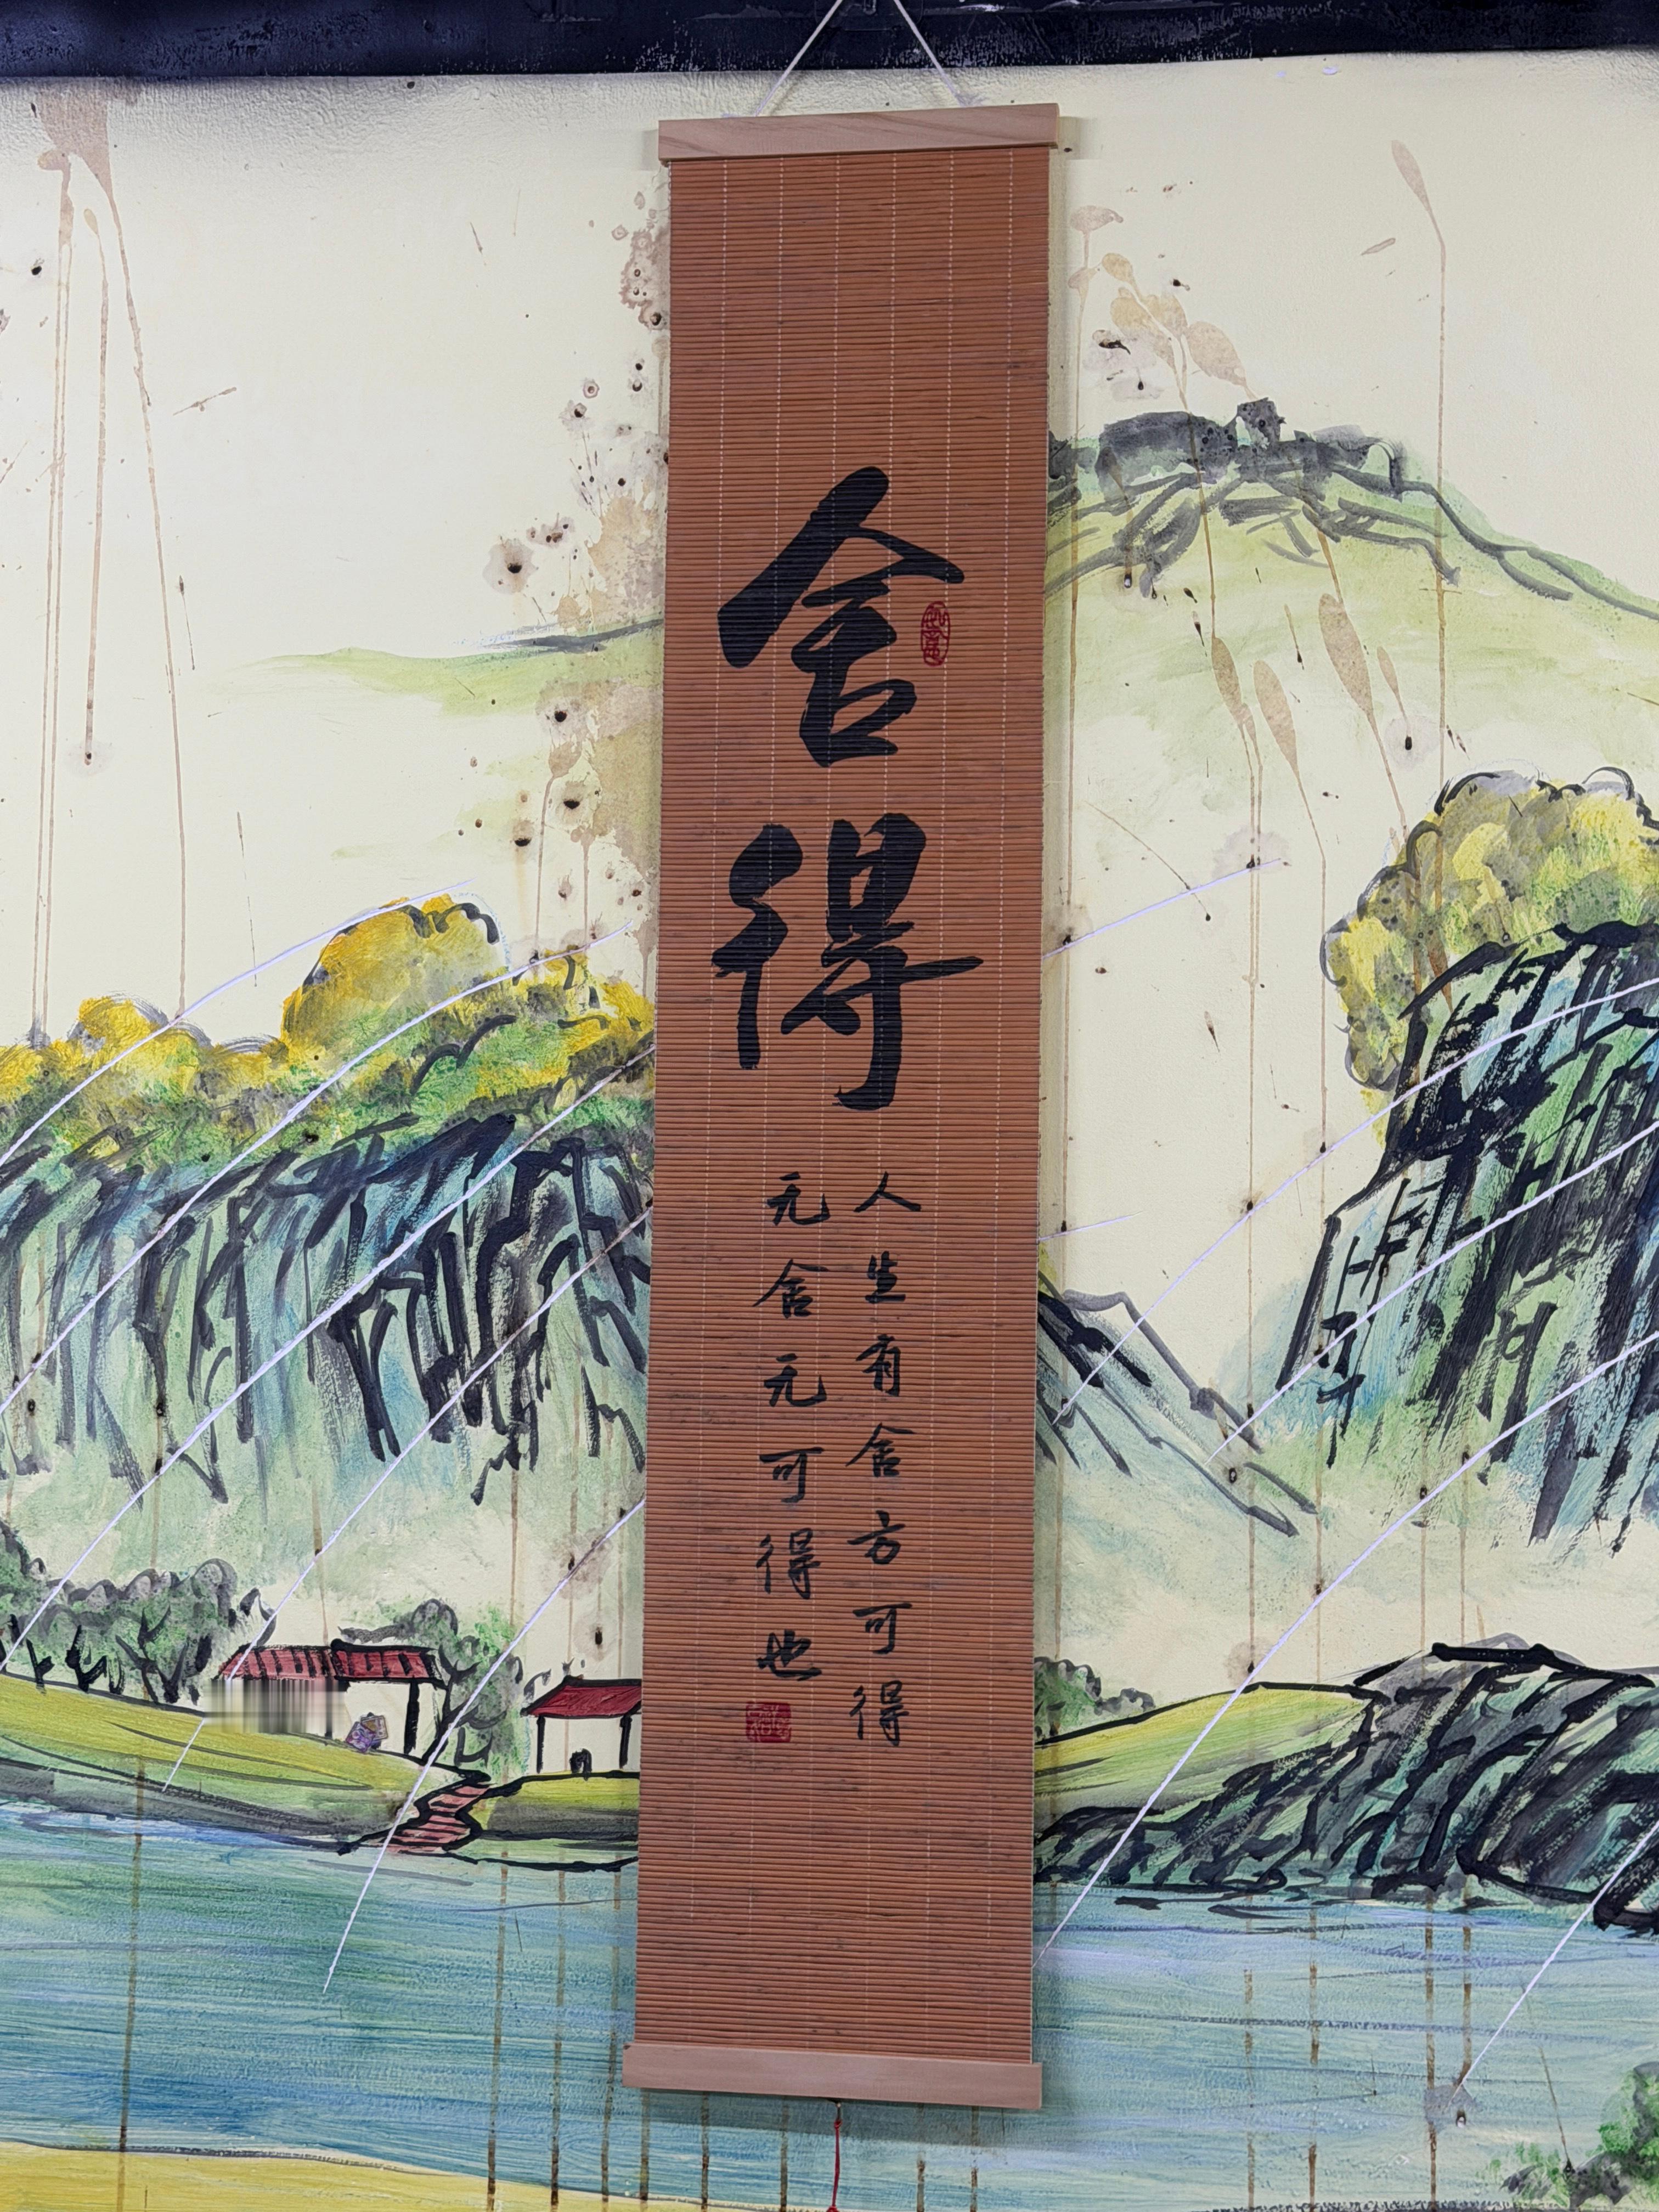 舍得
人生有舍方可得
无舍无可得也